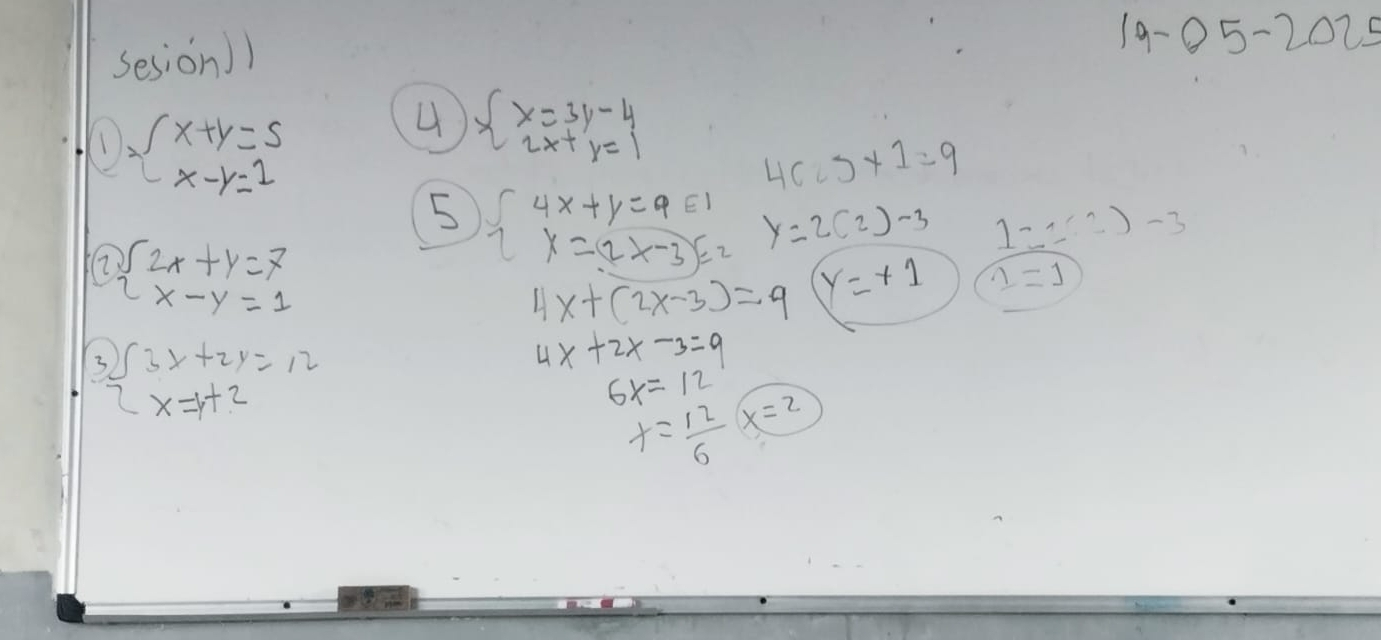 19-05-2025
Sesión 11
① { x+y=5
x-y=1
② { 2x+y=7
x-y=1
③ { 3x+2y=12
x=y+2
④ { x=3y-4
2x+y=1
⑤ { 4x+y=9 E1
Y=2x-3 E2
4x+(2x-3)=9
4x+2x-3=9
6x=12
x=12/6 x=2
4(2)+1=9
Y=2(2)-3
Y=+1
1=2(2)-3
1=1